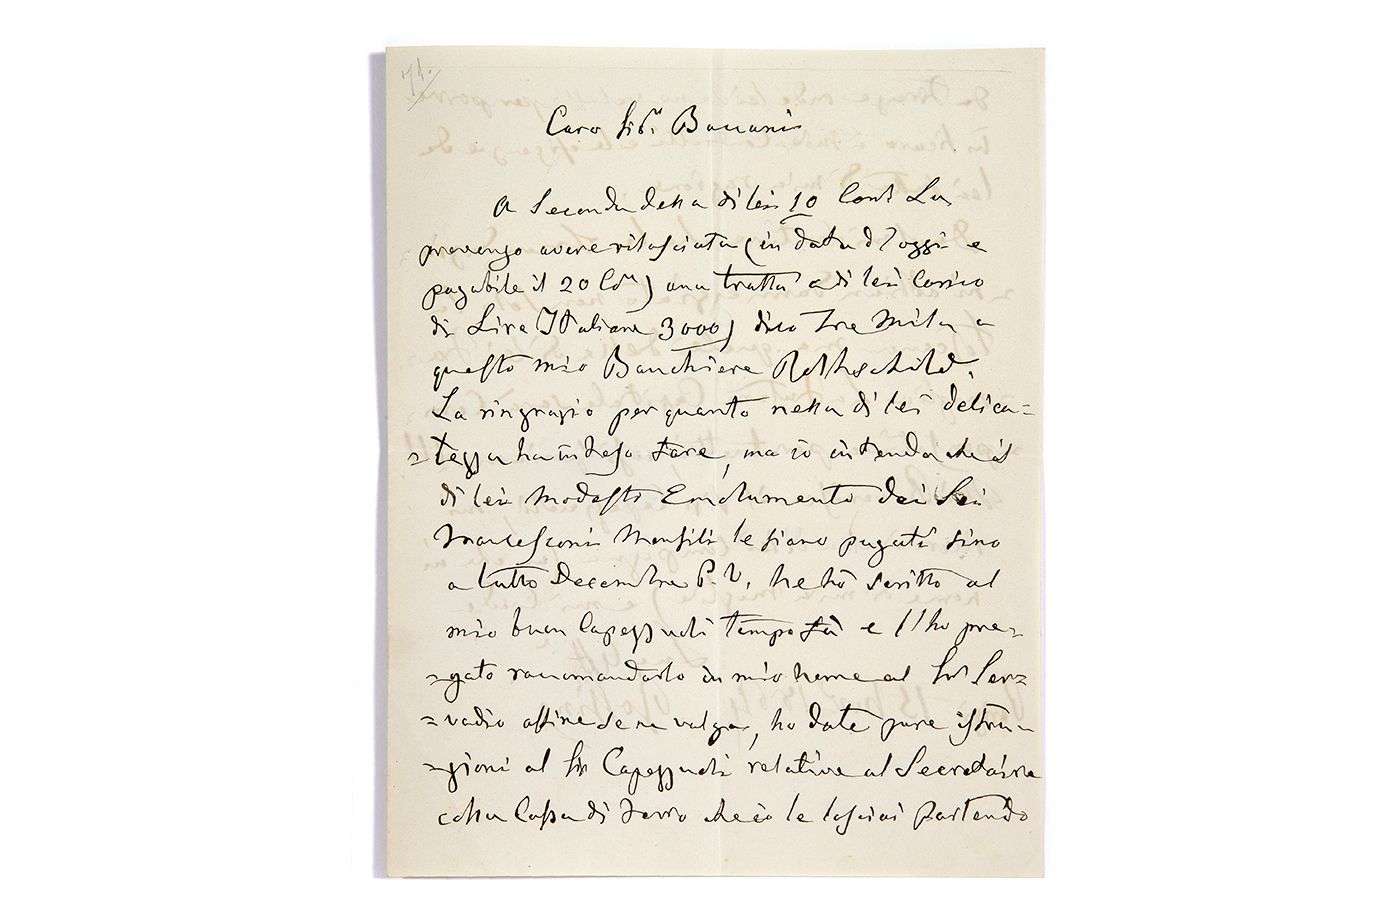 71.
Caro Sigr. Baccani
A Seconda della di lei 10 Corrt La
prevengo avere rilasciata (in data d'oggi e
pagabile il 20 Corr) una tratta a di lei Carico
di Lire Italiane 3000) dico Tre Mila a
questo mio Banchiere Rothschild.
La ringrazio per quanto nella di lei delica=
=tezza ha inteso fare, ma io intendo che il
di lei Modesto Emolumento dei Sei
Marescani Mensili le siano pagati sino
a tutto Decembre P. V. ne ho scritto al
mio buon Capezzuoli tempo fa e l'ho pre=
=gato raccomandarlo in mio nome al Sigr Ser=
=vadio affine se ne valga, ho date pure istru=
=zioni al Sigr Capezzuoli relative al Secretaire
colla Cassa di ferro che io le lasciai partendo